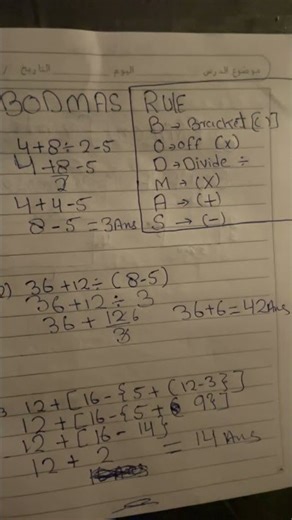 موضوع الدرس اليوم التاريخ /
BODMAS RULE
B → Bracket [{}]
O → off (x)
D → Divide ÷
M → (X)
A → (+)
S → (-)
4+8÷2-5
4+8/2-5
4+4-5
8-5=3 Ans
2) 36+12÷(8-5)
36+12÷3
36+126/3 36+6=42 Ans
3 12+[16-{5+(12-3}]
12+[16-{5+ 9}]
12+[16-14}
12+2 =14 Ans